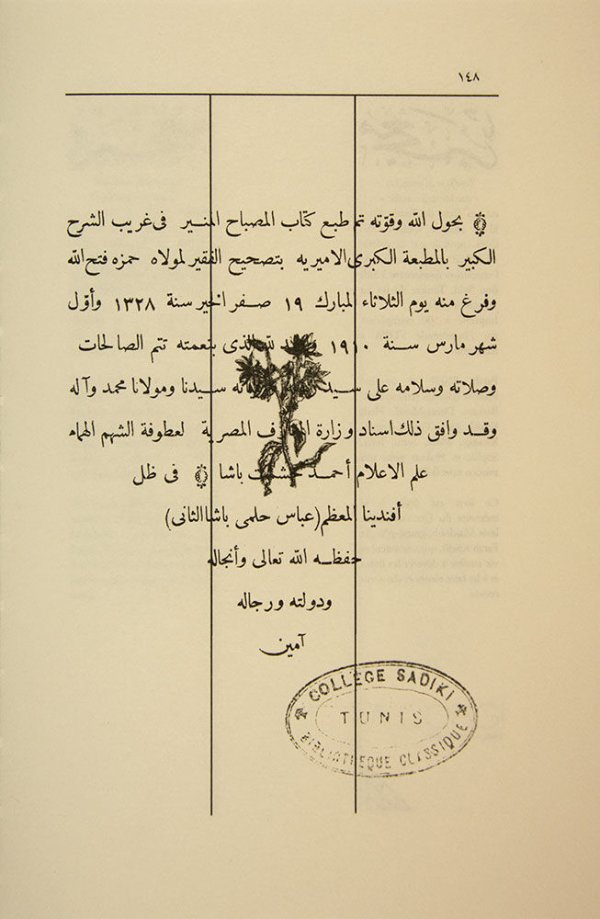 ١٤٨
بحول الله وقوّته تم طبع كتاب المصباح المنــير فى غريب الشرح
الكبير بالمطبعة الكبرى الاميريه بتصحيح الفقير لمولاه حمزه فتح الله
وفرغ منه يوم الثلاثاء المبارك ١٩ صــفر الخير سنة ١٣٢٨ وأوّل
شهر مارس ســنة ١٩١٠ لله الذى بنعمته تتم الصالحات
وصلاته وسلامه على سيدنا ومولانا محمد وآله
وقــد وافق ذلك اسناد وزارة المصرية لعطوفة الشهم الهمام
علم الاعلام أحمــد باشا فى ظل
أفندينا المعظم (عباس حلمى باشا الثانى)
حفظــه الله تعالى وأنجاله
ودولته ورجاله
آمين
COLLEGE SADIKI
TUNIS
BIBLIOTHEQUE CLASSIQUE